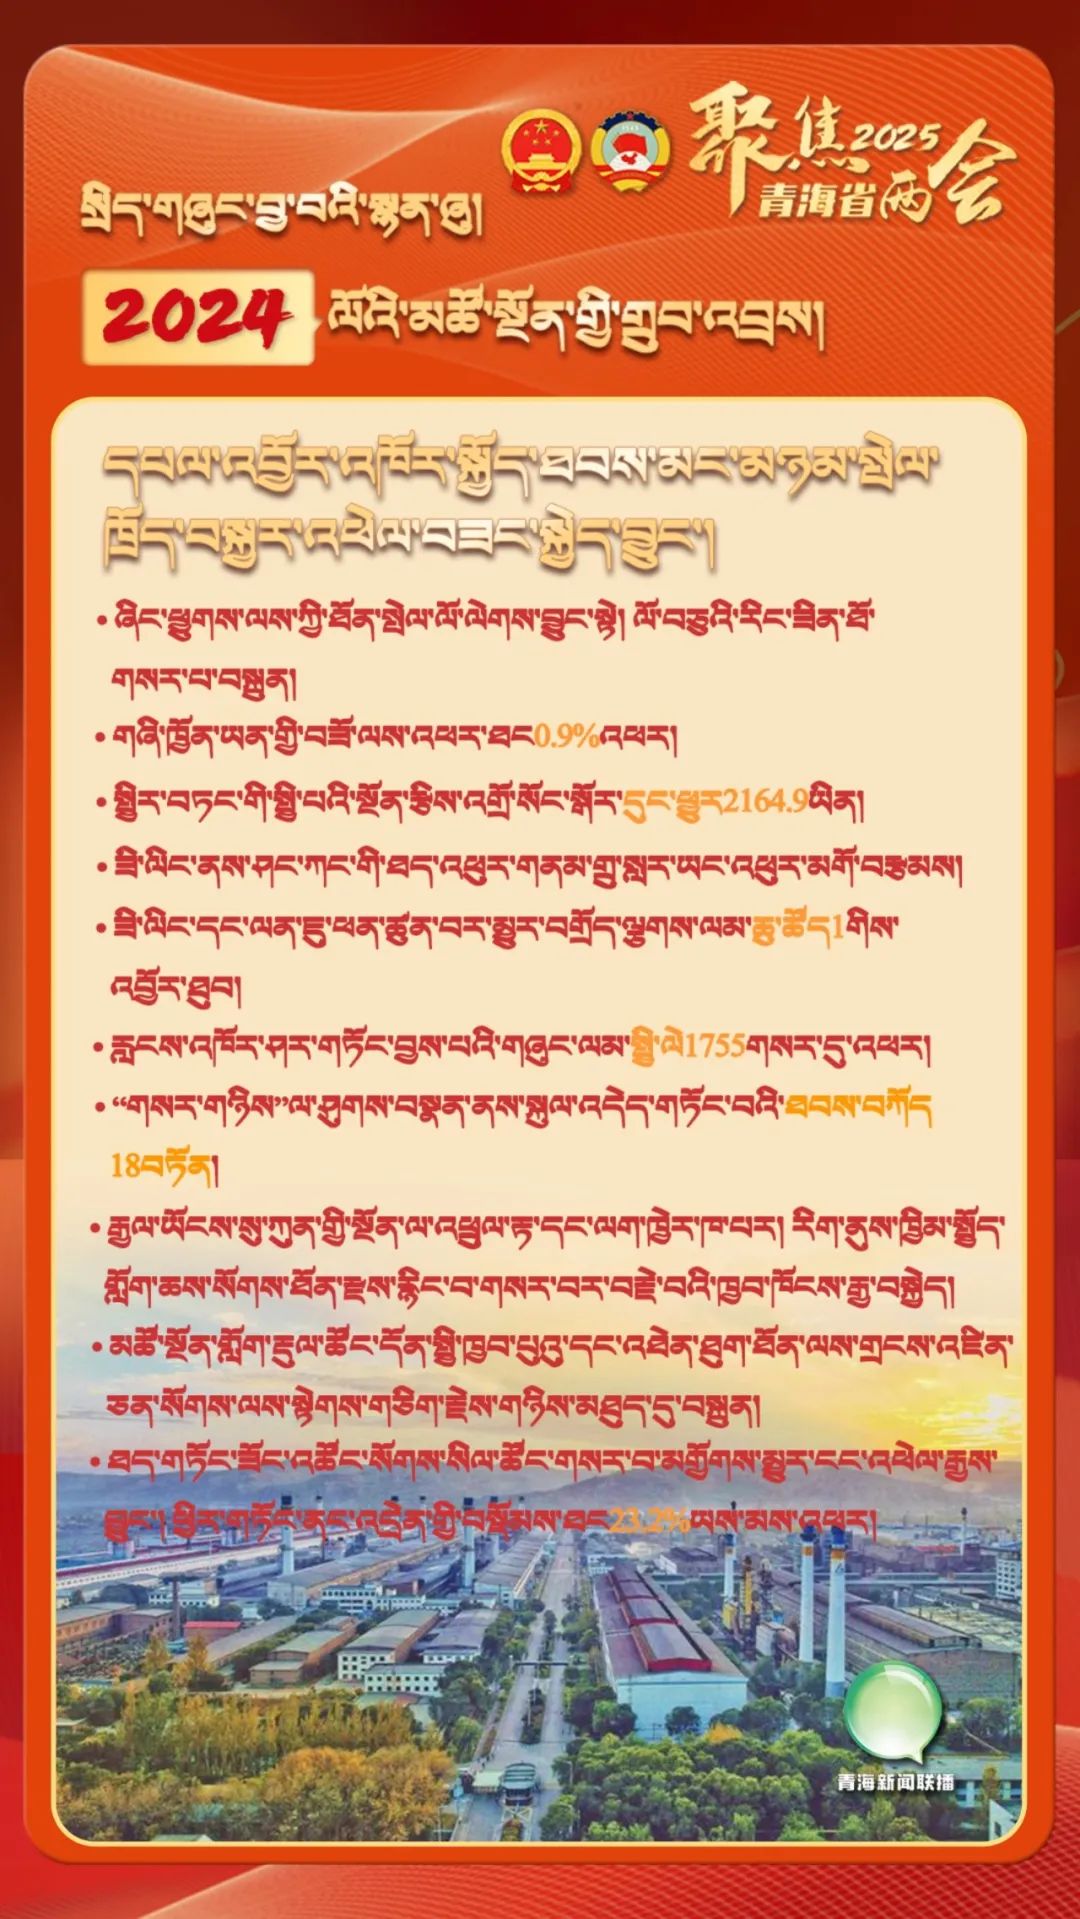 聚焦2025
青海省两会
སྲིད་གཞུང་བྱ་བའི་སྙན་ཞུ།
2024 ལོའི་མཚོ་སྔོན་གྱི་གྲུབ་འབྲས།
དཔལ་འབྱོར་འཁོར་སྐྱོད་ཐབས་མང་མཉམ་སྤེལ་
ཁྲོད་བསྐྱར་འཕེལ་བཟང་སྐྱེད་བྱུང་།
• ཞིང་ཕྱུགས་ལས་ཀྱི་ཐོན་སྤེལ་ལོ་ལེགས་བྱུང་སྟེ། ལོ་བཅུའི་རིང་ཟིན་ཐོ་
གསར་པ་བསྐྲུན།
• གཞི་ཁྱོན་ཡན་གྱི་བཟོ་ལས་འཕར་ཐང0.9%འཕར།
• སྤྱིར་བཏང་གི་སྤྱི་པའི་སྔོན་རྩིས་འགྲོ་སོང་སྒོར་དུང་ཕྱུར2164.9ཡིན།
• ཟི་ལིང་ནས་ཤང་ཀང་གི་ཐད་འཕུར་གནམ་གྲུ་སླར་ཡང་འཕུར་མགོ་བརྩམས།
• ཟི་ལིང་དང་ལན་ཇུ་ཕན་ཚུན་བར་མྱུར་བགྲོད་ལྕགས་ལམ་ཆུ་ཚོད1གིས་
འབྱོར་ཐུབ།
• རླངས་འཁོར་ཤར་གཏོང་བྱས་པའི་གཞུང་ལམ་སྤྱི་ལེ1755གསར་དུ་འཕར།
• “གསར་གཉིས”ལ་ཤུགས་བསྣན་ནས་སྐུལ་འདེད་གཏོང་བའི་ཐབས་བཀོད
18བཏོན།
• རྒྱལ་ཡོངས་སུ་ཀུན་གྱི་སྔོན་ལ་འཕྲུལ་རྟ་དང་ལག་ཁྱེར་ཁ་པར། རིག་ནུས་ཁྱིམ་སྤྱོད་
གློག་ཆས་སོགས་ཐོན་རྫས་རྙིང་བ་གསར་བར་བརྗེ་བའི་ཁྱབ་ཁོངས་རྒྱ་བསྐྱེད།
• མཚོ་སྔོན་གློག་རྡུལ་ཚོང་དོན་སྤྱི་ཁྱབ་པུའུ་དང་འཐེན་ཐུག་ཐོན་ལས་གྲངས་འཛིན་
ཅན་སོགས་ལས་སྟེགས་གཅིག་རྗེས་གཉིས་མཐུད་དུ་བསྐྲུན།
• ཐད་གཏོང་ཟོང་འཚོང་སོགས་སིལ་ཚོང་གསར་བ་མགྱོགས་མྱུར་ངང་འཕེལ་རྒྱས་
བྱུང་། ཕྱིར་གཏོང་ནང་འདྲེན་གྱི་བསྡོམས་ཐང23.2%ཡས་མས་འཕར།
青海新闻联播